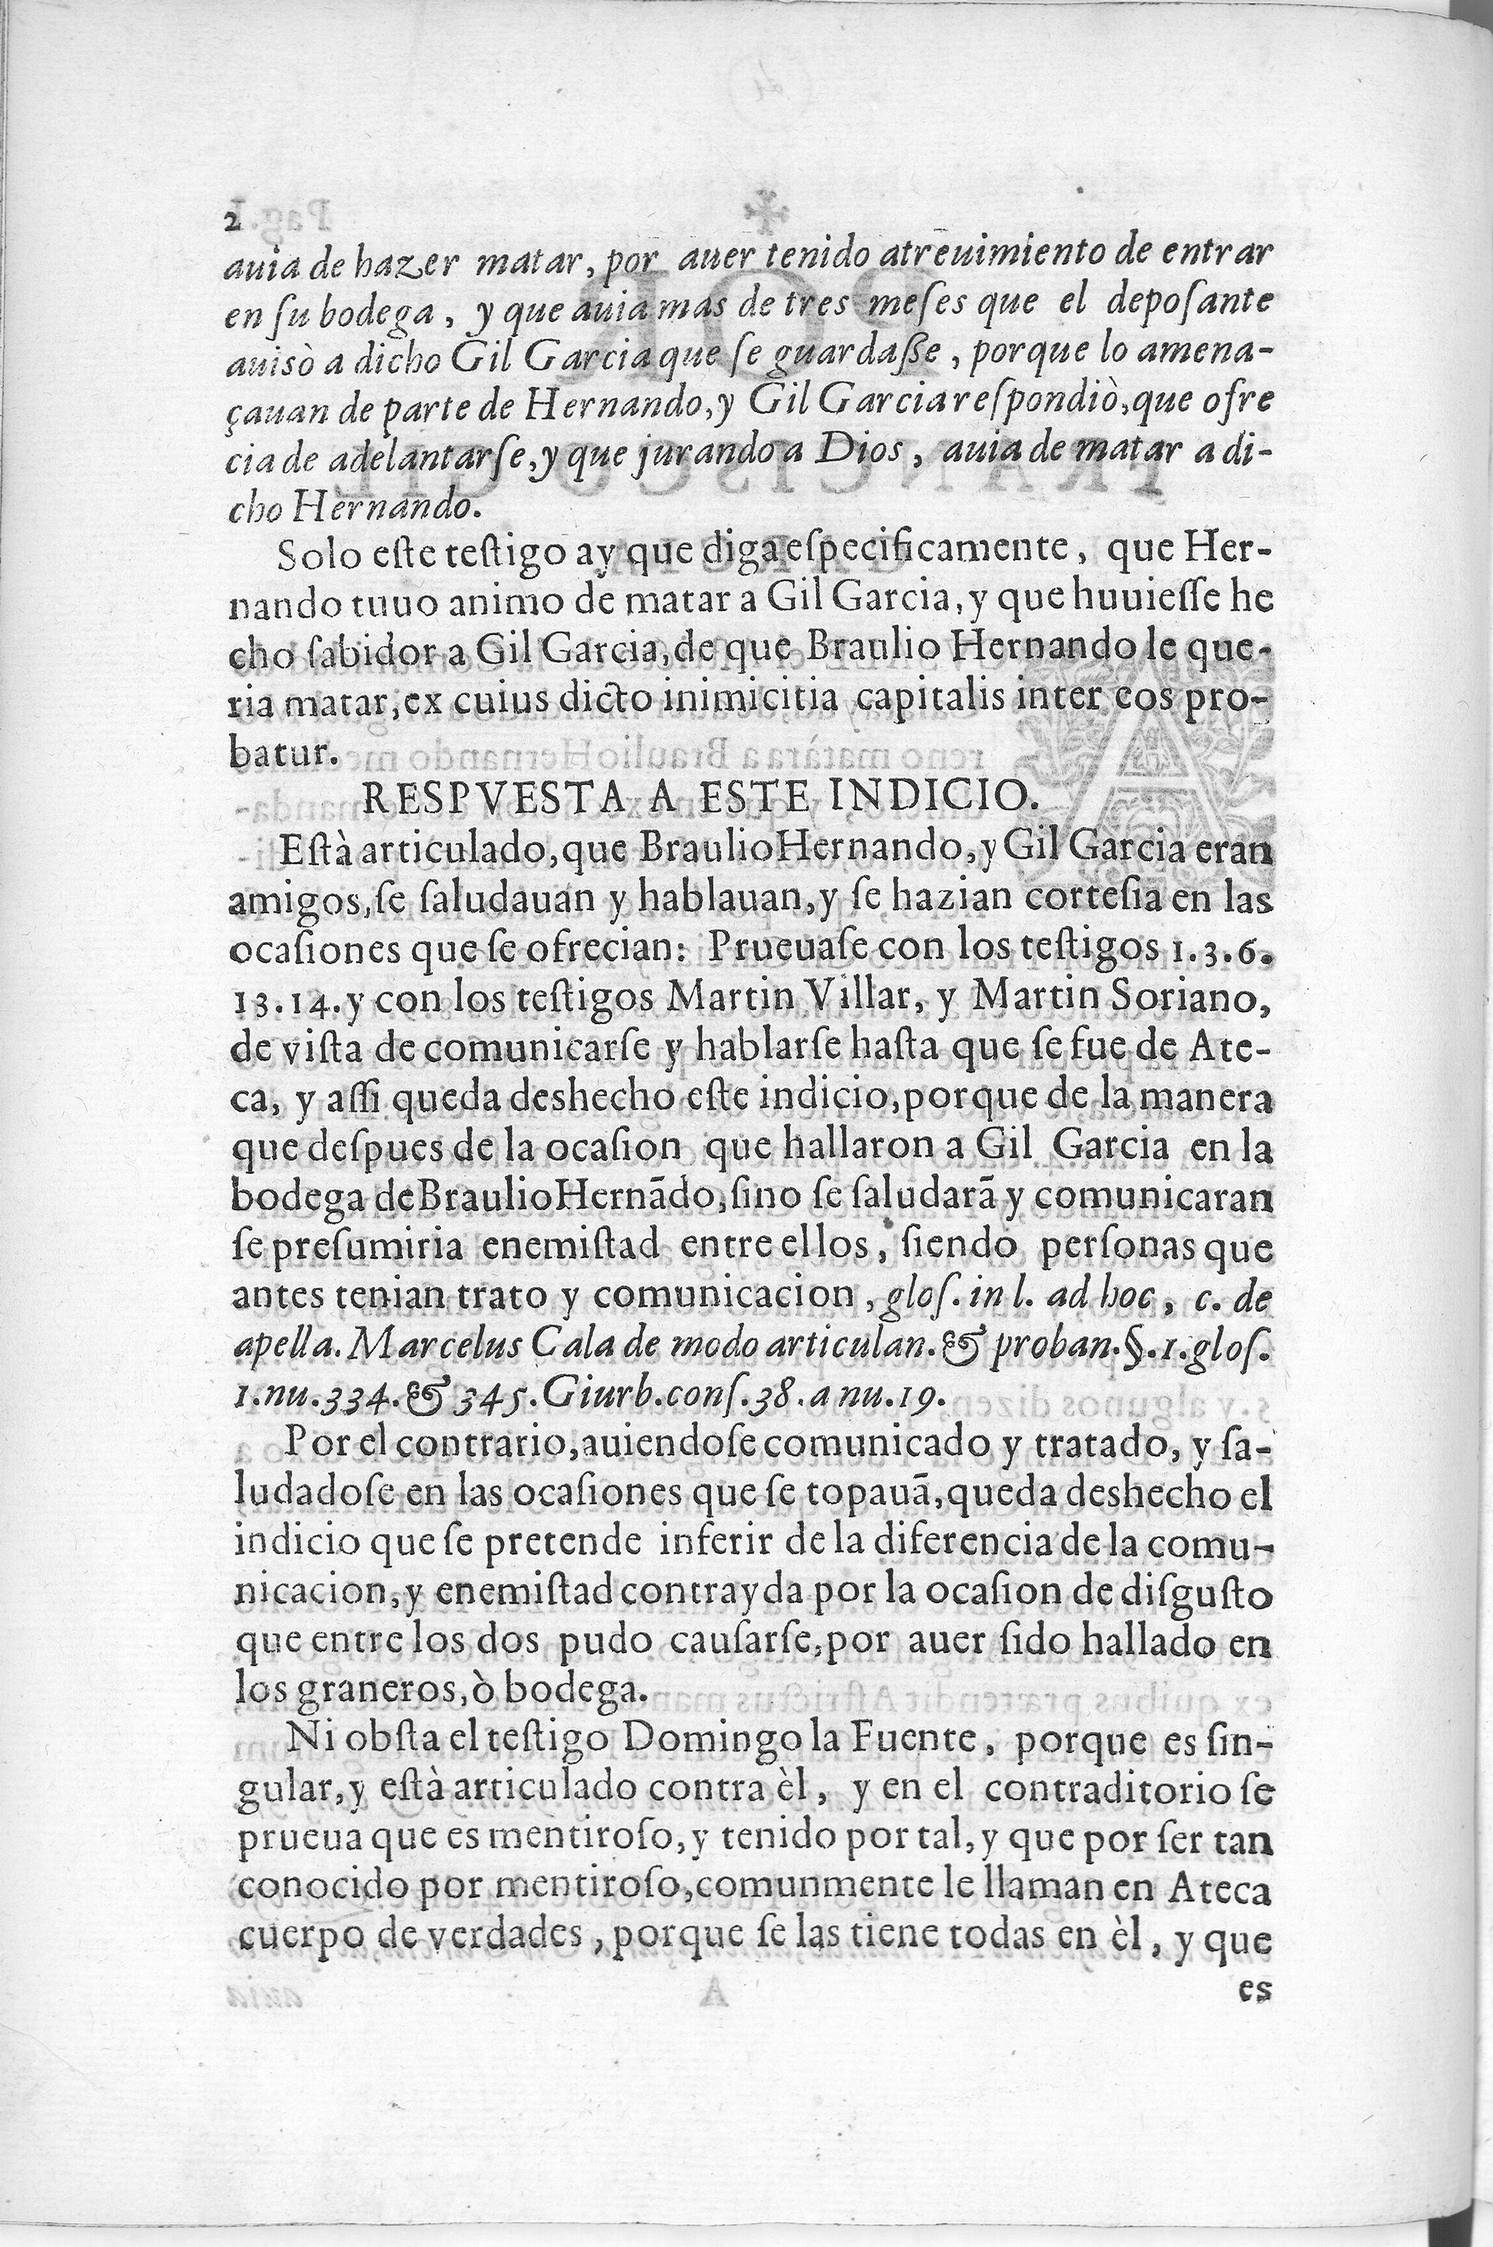 2
auia de hazer matar, por auer tenido atreuimiento de entrar
en ſu bodega, y que auia mas de tres meſes que el depoſante
auisò a dicho Gil Garcia que ſe guardaſſe, porque lo amena-
çauan de parte de Hernando, y Gil Garcia reſpondiò, que ofre
cia de adelantarſe, y que jurando a Dios, auia de matar a di-
cho Hernando.
Solo eſte teſtigo ay que diga eſpecificamente, que Her-
nando tuuo animo de matar a Gil Garcia, y que huuieſſe he
cho ſabidor a Gil Garcia, de que Braulio Hernando le que-
ria matar, ex cuius dicto inimicitia capitalis inter eos pro-
batur.
RESPVESTA A ESTE INDICIO.
Eſtà articulado, que Braulio Hernando, y Gil Garcia eran
amigos, ſe ſaludauan y hablauan, y ſe hazian corteſia en las
ocaſiones que ſe ofrecian: Prueuaſe con los teſtigos 1.3.6.
13.14. y con los teſtigos Martin Villar, y Martin Soriano,
de viſta de comunicarſe y hablarſe haſta que ſe fue de Ate-
ca, y aſſi queda deshecho eſte indicio, porque de la manera
que deſpues de la ocaſion que hallaron a Gil Garcia en la
bodega de Braulio Hernãdo, ſino ſe ſaludarã y comunicaran
ſe preſumiria enemiſtad entre ellos, ſiendo perſonas que
antes tenian trato y comunicacion, gloſ. in l. ad hoc, c. de
apella. Marcelus Cala de modo articulan. & proban. §. 1. gloſ.
1. nu. 334. & 345. Giurb. conſ. 38. a nu. 19.
Por el contrario, auiendoſe comunicado y tratado, y ſa-
ludadoſe en las ocaſiones que ſe topauã, queda deshecho el
indicio que ſe pretende inferir de la diferencia de la comu-
nicacion, y enemiſtad contrayda por la ocaſion de diſguſto
que entre los dos pudo cauſarſe, por auer ſido hallado en
los graneros, ò bodega.
Ni obſta el teſtigo Domingo la Fuente, porque es ſin-
gular, y eſtà articulado contra èl, y en el contraditorio ſe
prueua que es mentiroſo, y tenido por tal, y que por ſer tan
conocido por mentiroſo, comunmente le llaman en Ateca
cuerpo de verdades, porque ſe las tiene todas en èl, y que
es